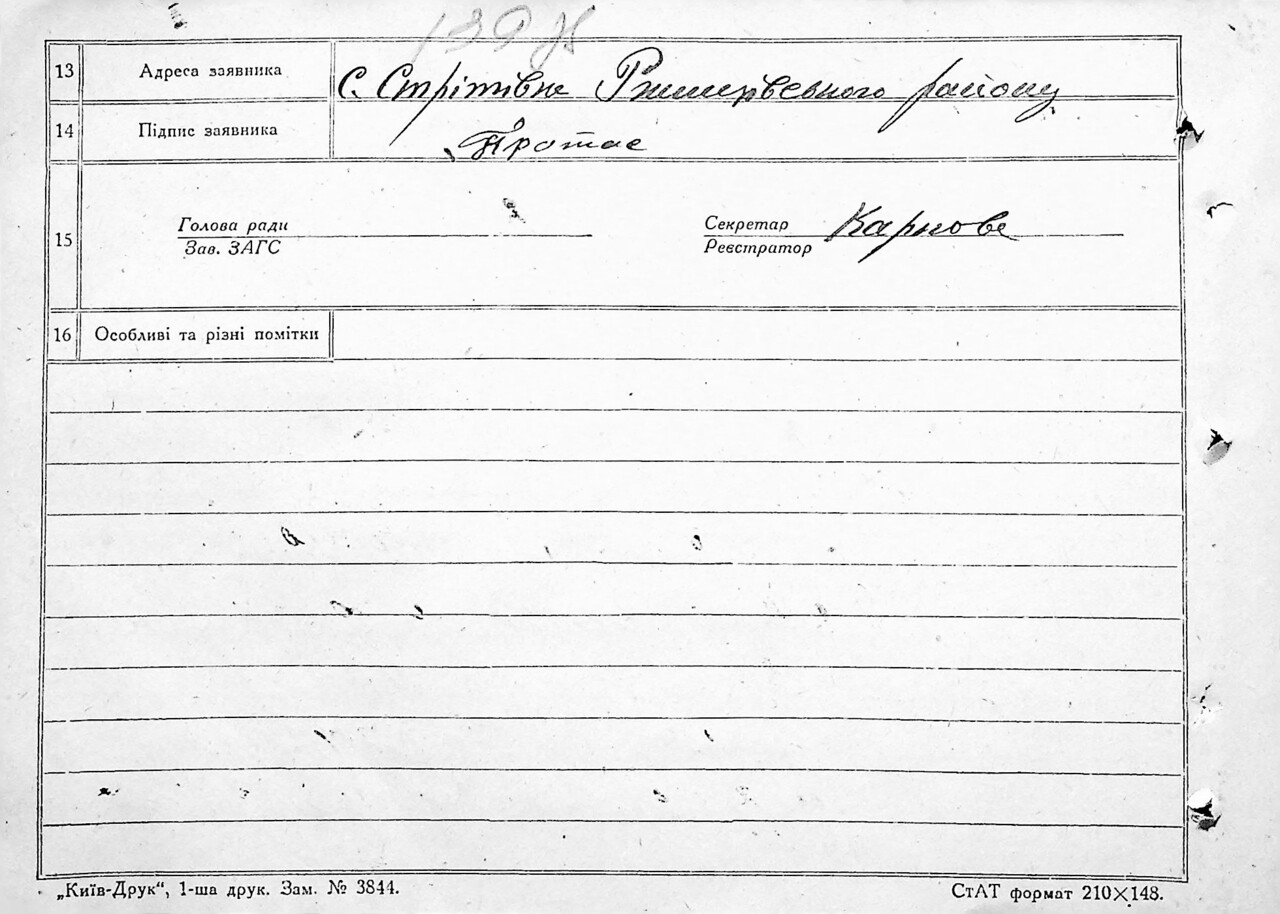 13 Адреса заявника с. Стрітівка Ржищівського району
14 Підпис заявника Протас
15 Голова ради Секретар
Зав. ЗАГС Реєстратор
16 Особливі та різні помітки
„Київ-Друк“, 1-ша друк. Зам. № 3844. СтАТ формат 210×148.